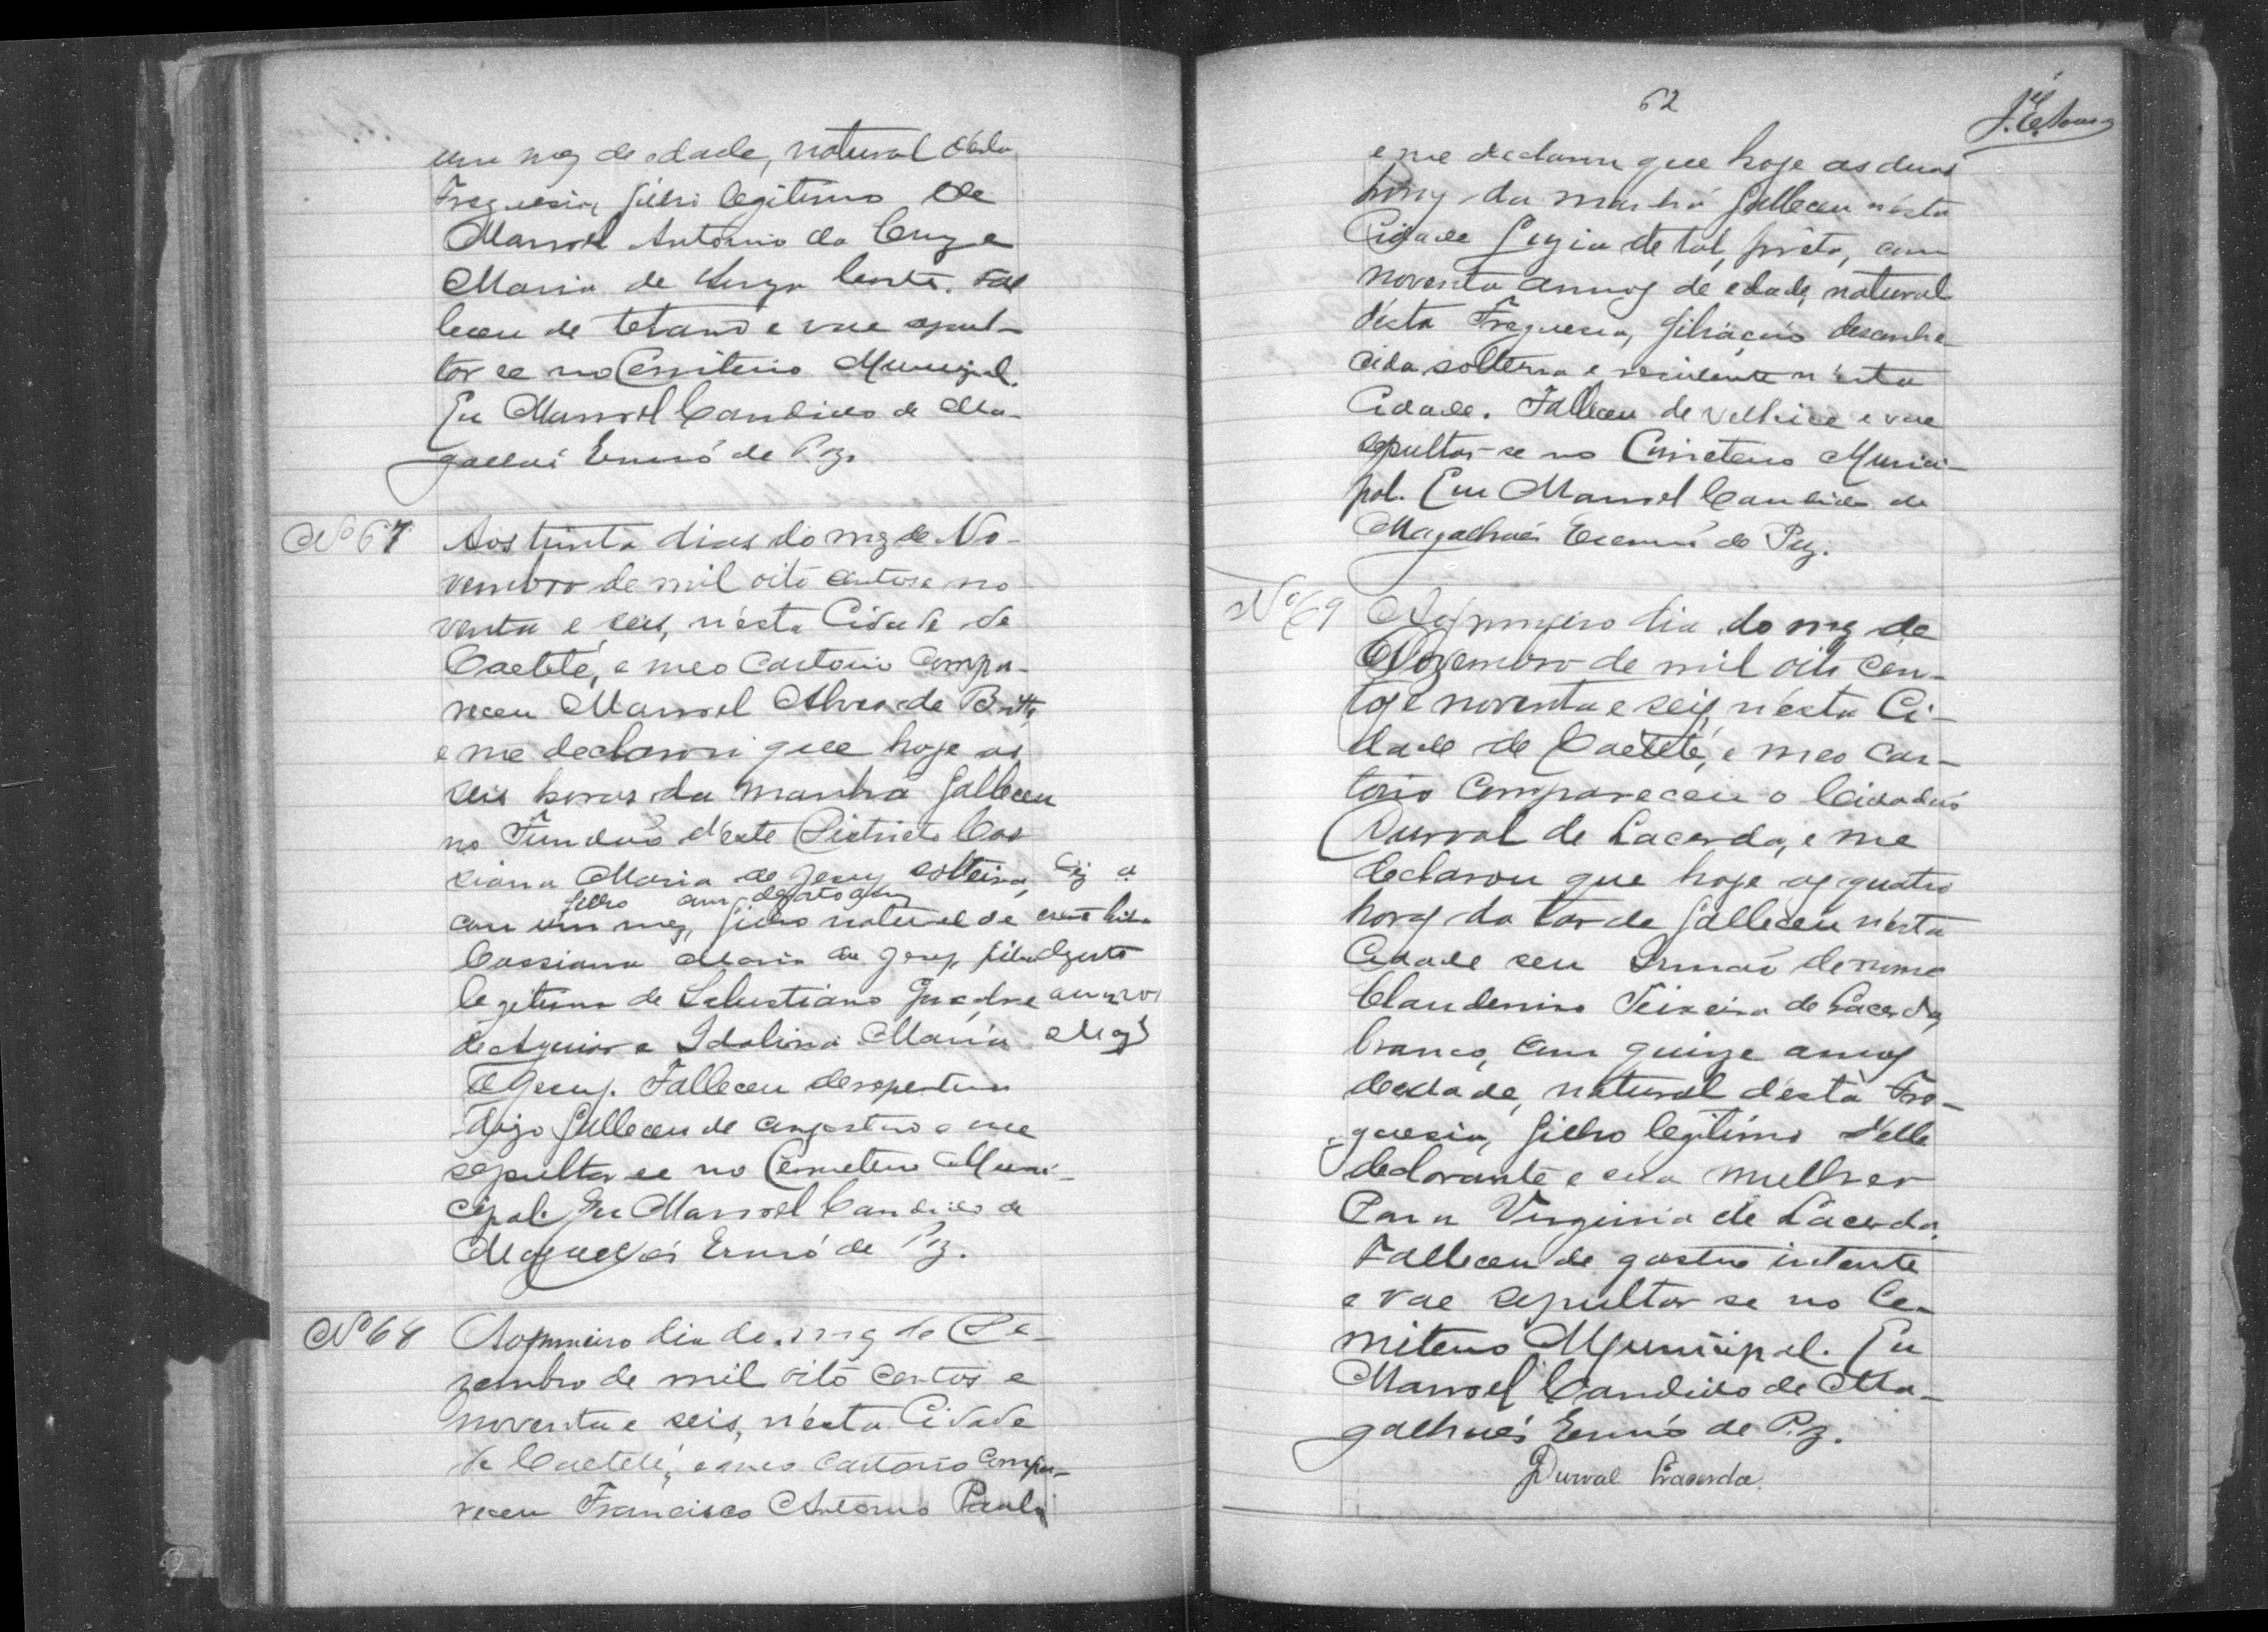 um mez de edade, natural desta
Freguesia, filho legitimo de
Manoel Antonio da Cruz e
Maria de Fal
leceu de tetano e vae sepul-
tar se no Cemiterio Municipal.
Eu Manoel Candido de Ma-
galhães Escrivão de Paz.
Nº 67 Aos trinta dias do mez de No-
vembro de mil oito centos e no
venta e seis, n'ésta Cidade de
Caeteté, e meo Cartorio compa-
receu Manoel Alves de Britto
e me declarou que hoje as
seis horas da manhã falleceu
no Fundão d'este Districto Cas
siana Maria de Jesus solteira, digo
filho com
com um mez, filho natural de
Cassiana Maria de Jesus filha
legitima de Salustiano annos
de Aguiar e Idalina Maria
de Jesus. Falleceu
digo falleceu de e vae
sepultar se no Cemiterio Muni-
cipal. Eu Manoel Candido de
Magalhães Escrivão de Paz.
Nº 68 Ao primeiro dia do mez de De-
zembro de mil oito centos e
noventa e seis, n'ésta Cidade
de Caeteté, e meo Cartorio compa-
receu Francisco Antonio Paula
62
e me declarou que hoje as duas
horas da manhã falleceu nésta
Cidade de tal, preta, com
noventa annos de edade, natural
d'ésta Freguesia, filiação desconhe-
cida solteira e residente n'ésta
Cidade. Falleceu de velhice e vae
sepultar-se no Cemiterio Munici-
pal. Eu Manoel Candido de
Magalhães Escrivão de Paz.
Nº 69 Ao primeiro dia do mez de
Dezembro de mil oito cen-
tos e noventa e seis, n'ésta Ci-
dade de Caeteté, e meo Car-
torio compareceu o Cidadão
Durval de Lacerda, e me
declarou que hoje as quatro
horas da tarde falleceu n'ésta
Cidade seu Irmão de nome
Claudemiro Teixeira de Lacerda,
branco, com quinze annos
de edade, natural d'ésta Fre-
guesia, filho legitimo d'elle
declarante e sua mulher
Virginia de Lacerda.
Falleceu de gastro
e vae sepultar se no Ce-
miterio Municipal. Eu
Manoel Candido de Ma-
galhães Escrivão de Paz.
Durval Lacerda.